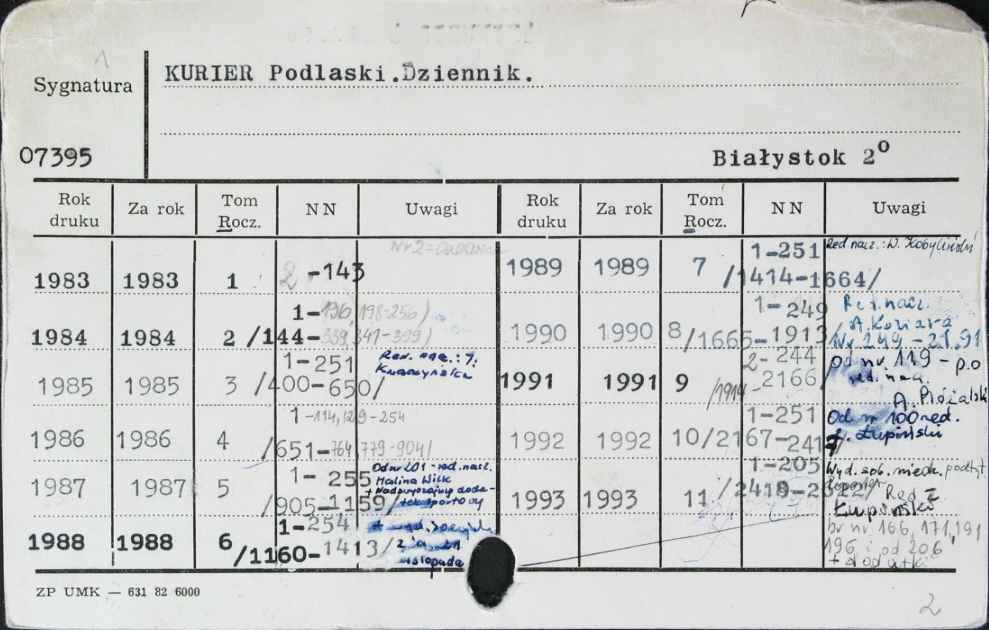 1
Sygnatura
KURIER Podlaski.Dziennik.
07395
Białystok 2°
Rok druku Za rok Tom Rocz. NN Uwagi Rok druku Za rok Tom Rocz. NN Uwagi
1983 1983 1 2 -143 Nr 2=
1984 1984 2 1-196, 198-256) /144-339, 341-399)
1985 1985 3 1-251 /400-650/ Red. nacz.:
1986 1986 4 1-114, 129-254 /651-764, 779-904/
1987 1987 5 1-255 /905-1159/ Od nr 201-red.nacz. Halina Wilk + Nadzwyczajny doda-
1988 1988 6 1-254 /1160-1413/ listopada
1989 1989 7 1-251 /1414-1664/ Red nacz.: W.
1990 1990 8 1-249 /1665-1913/ Red.nacz. A. Koziara
1991 1991 9 2-244 /1914-2166/ od nr. 119 - p.o red. nacz. A.
1992 1992 10 1-251 /2167-241 Od nr 100 red. Łupiński
1993 1993 11 1-205 /2418- Wyd. sob. niedz. podtyt. Red Ł Łupiński
br nr 166, 171, 191
196 i od 206
+ dodatki
ZP UMK — 631 82 6000
2